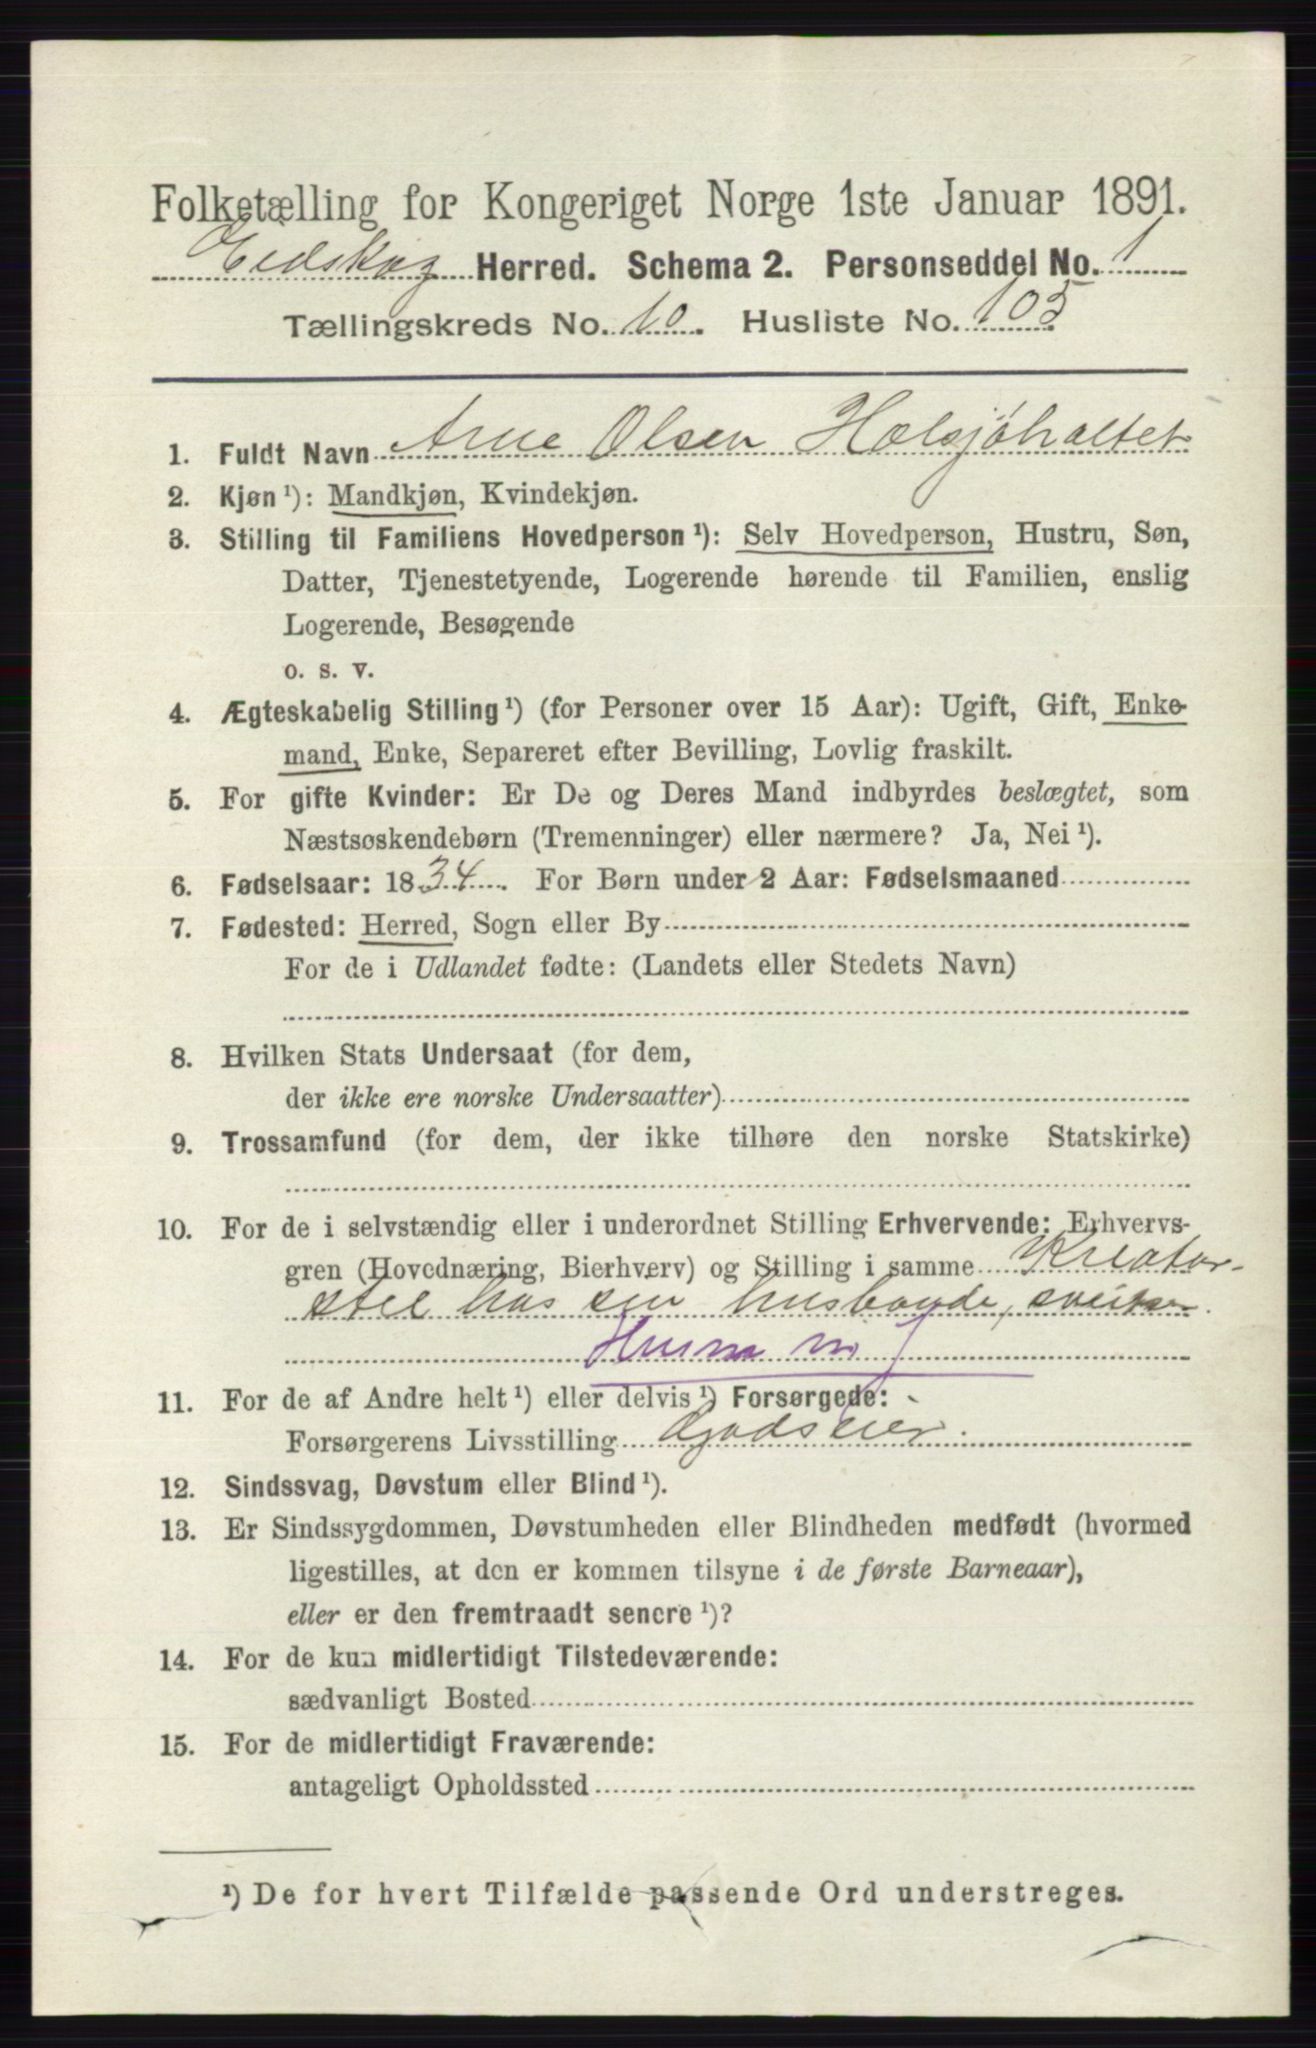 Folketælling for Kongeriget Norge 1ste Januar 1891.
Eidskog Herred. Schema 2. Personseddel No. 1
Tællingskreds No. 10. Husliste No. 105
1. Fuldt Navn Arne Olsen Holsjøholtet
2. Kjøn ¹): Mandkjøn, Kvindekjøn.
3. Stilling til Familiens Hovedperson ¹): Selv Hovedperson, Hustru, Søn,
Datter, Tjenestetyende, Logerende hørende til Familien, enslig
Logerende, Besøgende
o. s. v.
4. Ægteskabelig Stilling ¹) (for Personer over 15 Aar): Ugift, Gift, Enke-
mand, Enke, Separeret efter Bevilling, Lovlig fraskilt.
5. For gifte Kvinder: Er De og Deres Mand indbyrdes beslægtet, som
Næstsøskendebørn (Tremenninger) eller nærmere? Ja, Nei ¹).
6. Fødselsaar: 1834. For Børn under 2 Aar: Fødselsmaaned
7. Fødested: Herred, Sogn eller By
For de i Udlandet fødte: (Landets eller Stedets Navn)
8. Hvilken Stats Undersaat (for dem,
der ikke ere norske Undersaatter)
9. Trossamfund (for dem, der ikke tilhøre den norske Statskirke)
10. For de i selvstændig eller i underordnet Stilling Erhvervende: Erhvervs-
gren (Hovednæring, Bierhverv) og Stilling i samme Kreatur-
stel hos sin husbonde, sveitser.
Husm m j
11. For de af Andre helt ¹) eller delvis ¹) Forsørgede:
Forsørgerens Livsstilling Godseier.
12. Sindssvag, Døvstum eller Blind ¹).
13. Er Sindssygdommen, Døvstumheden eller Blindheden medfødt (hvormed
ligestilles, at den er kommen tilsyne i de første Barneaar),
eller er den fremtraadt senere ¹)?
14. For de kun midlertidigt Tilstedeværende:
sædvanligt Bosted
15. For de midlertidigt Fraværende:
antageligt Opholdssted
¹) De for hvert Tilfælde passende Ord understreges.